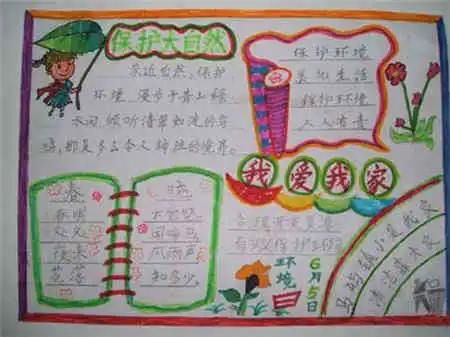 保护大自然
亲近自然,保护
环境,漫步于青山绿
水间,倾听清翠如流的鸟
鸣,那是多么令人
保护环境
美化生活
保护环境
人人有责
我爱我家
春
晓
春眠
不觉晓
处处
闻啼鸟
夜来
风雨声
花落
知多少。
合理开发资源
有效保护环境
环境日
6月5日
小是我家
清洁靠大家